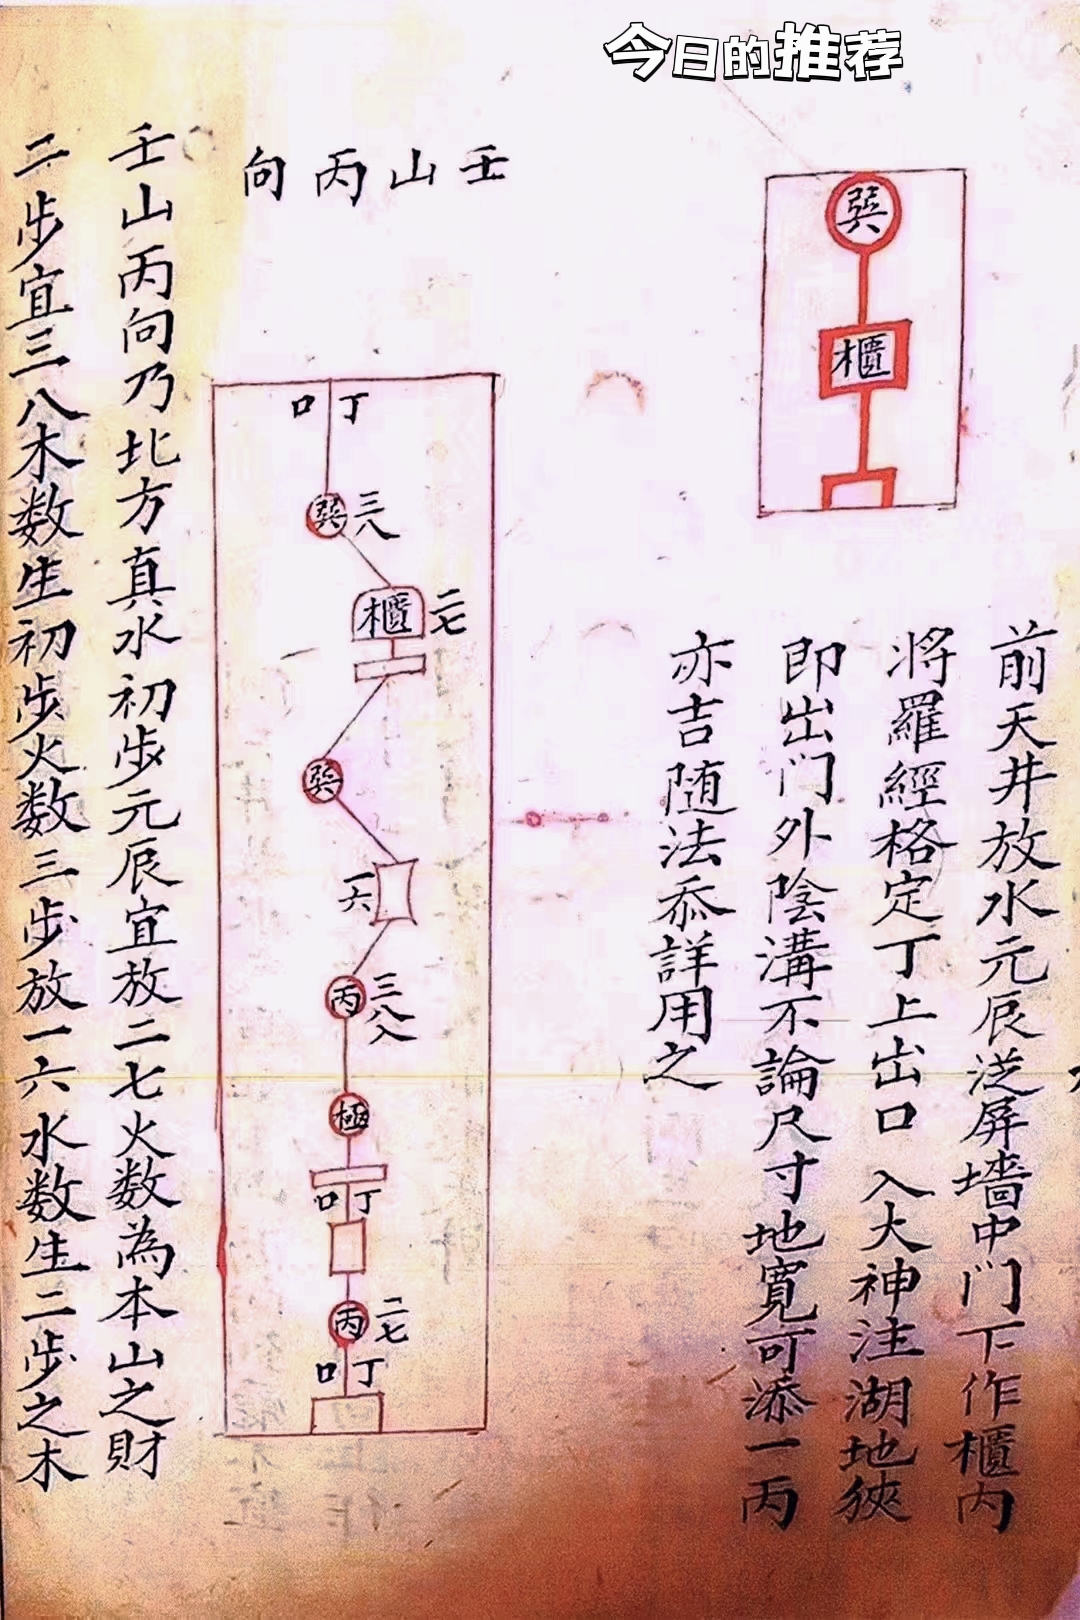 今日的推荐
巽
櫃
前天井放水元辰泛屏墻中門下作櫃内
將羅經格定丁上出口入大神注湖地狹
即出门外陰溝不論尺寸地寬可添一丙
亦吉随法叅詳用之
壬山丙向
丁口
巽 三八
櫃 二七
巽
一六
丙 三八
極
丁口
丙 二七
丁口
壬山丙向乃北方真水初步元辰宜放二七火数為本山之財
二步宜三八木数生初步火数三步放一六水数生二步之木